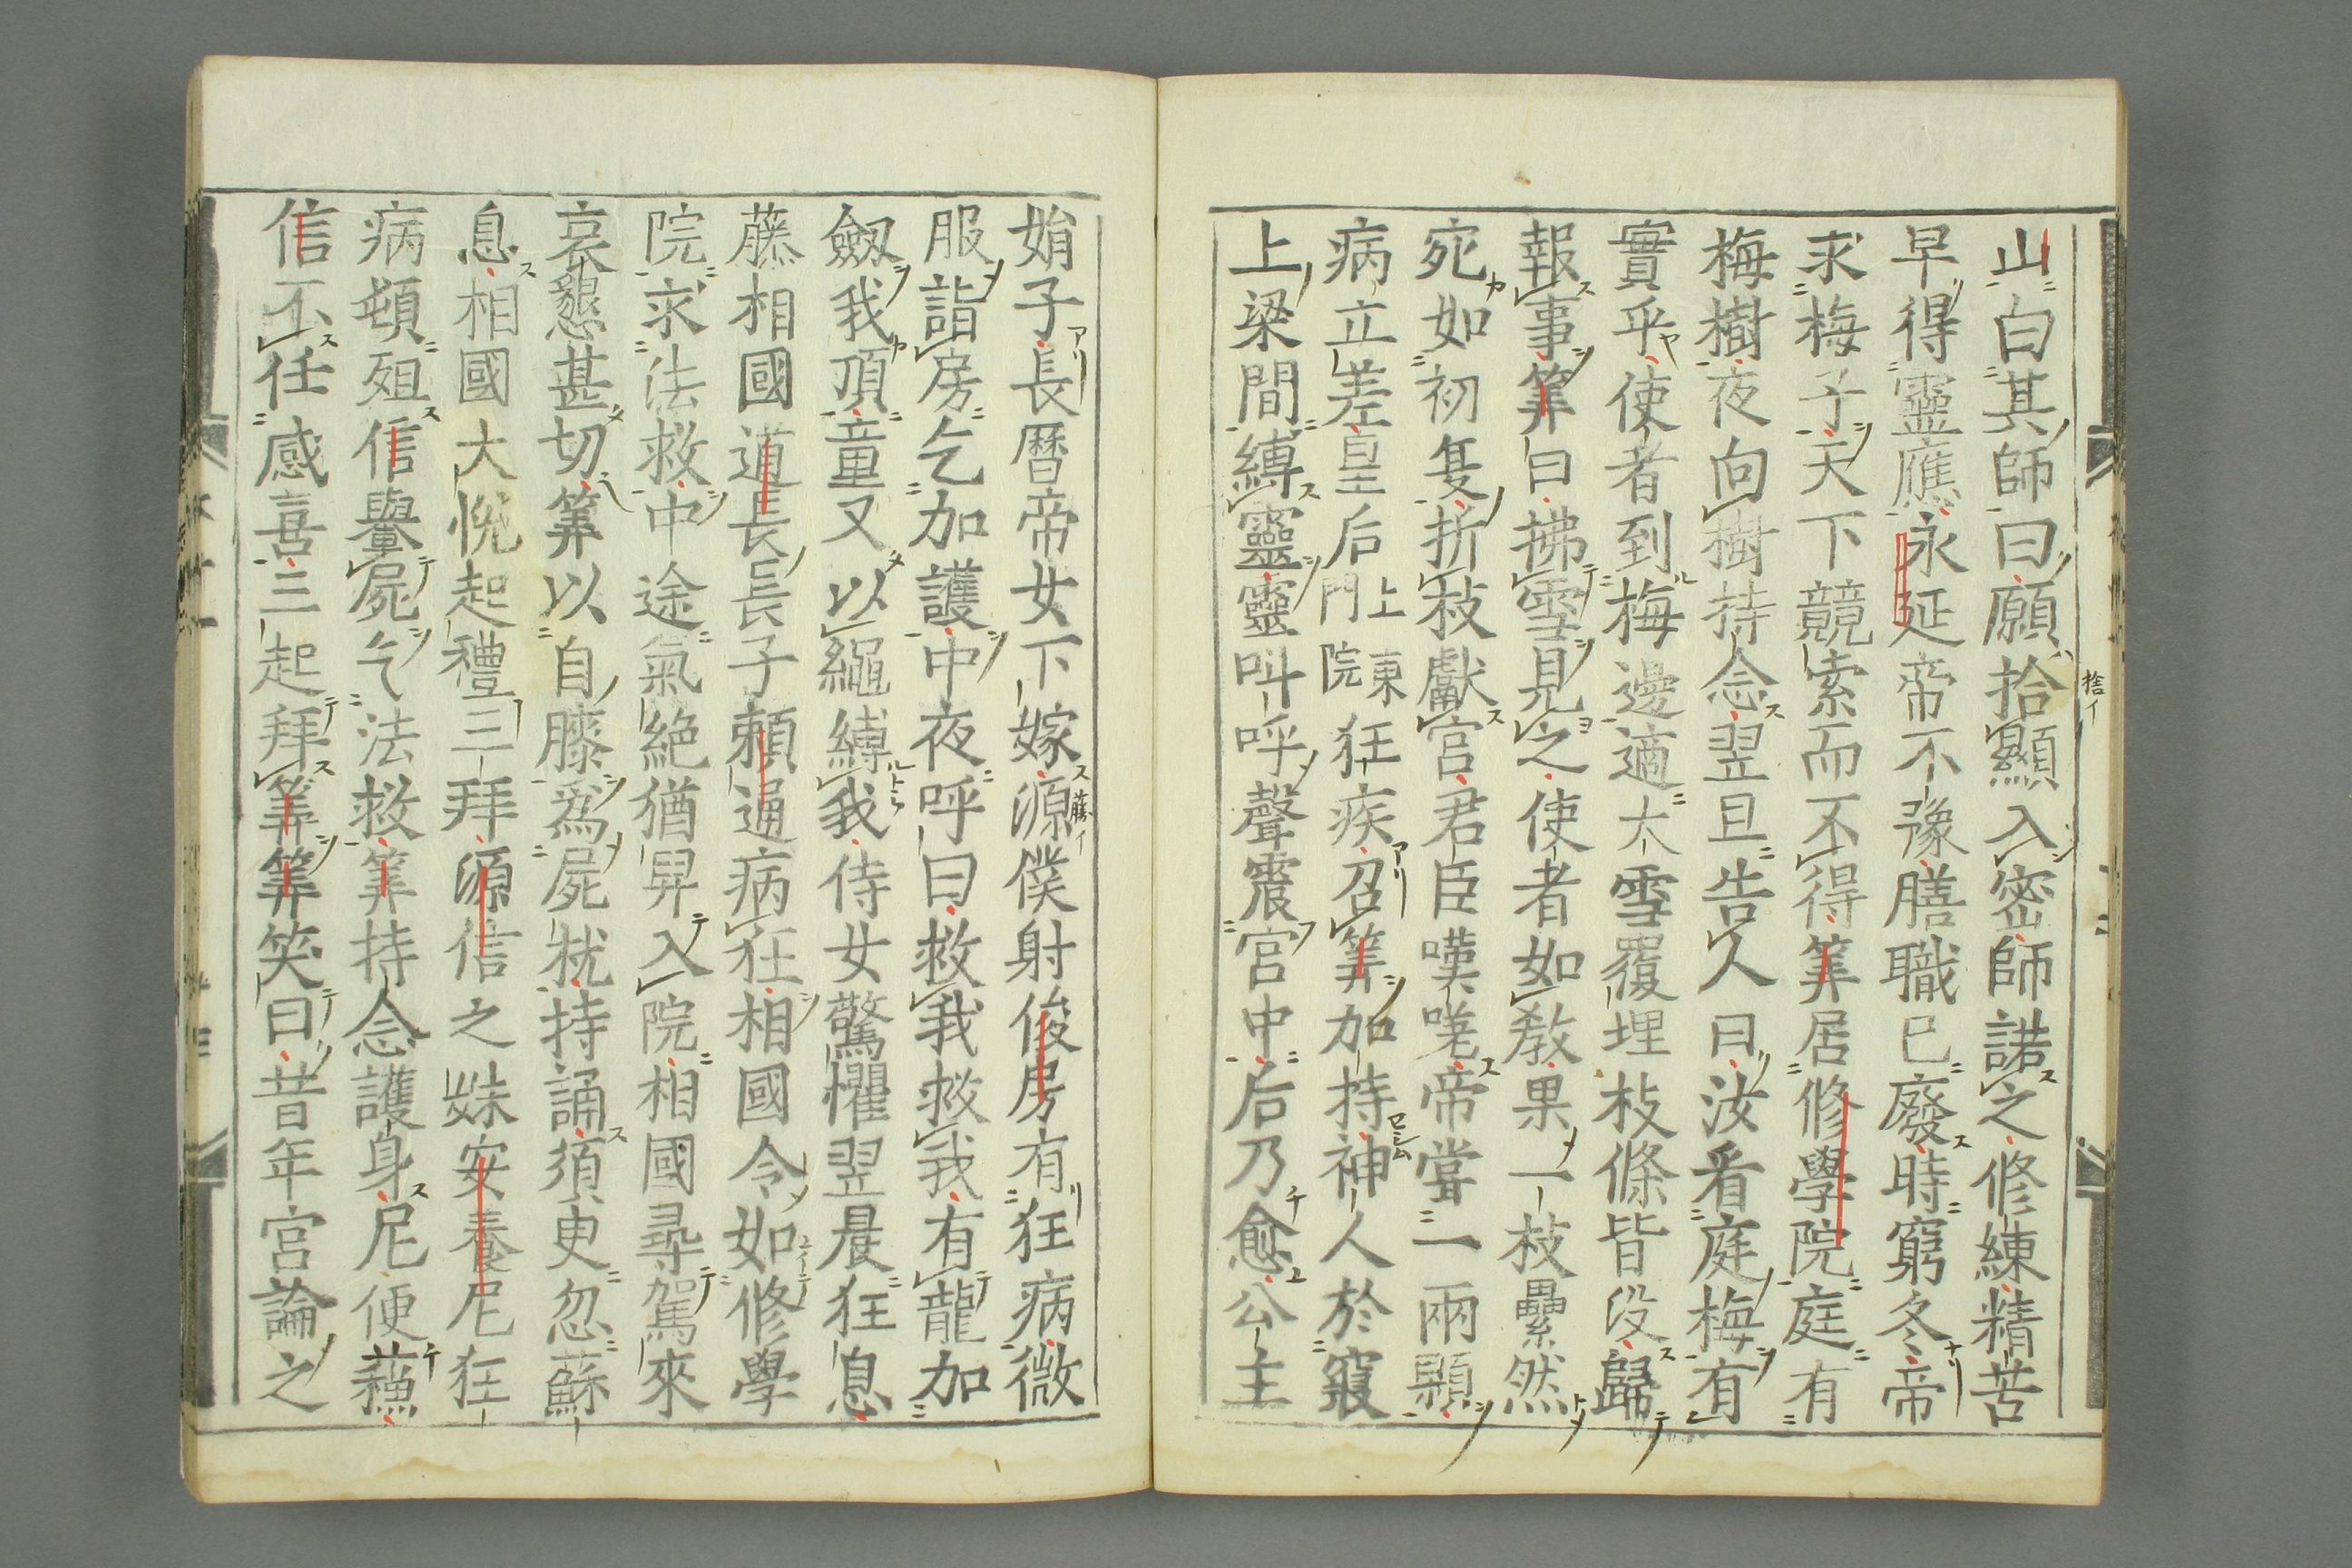 山白其師曰願拾顯入密師諾之修練精苦
早得靈應永延帝不豫膳職已廢時窮冬帝
求梅子天下競索而不得筭居修學院庭有
梅樹夜向樹持念翌旦告人曰汝看庭梅有
實乎使者到梅邊適大雪覆埋枝條皆没歸
報事筭曰拂雪見之使者如教果一枝纍然
宛如初夏折枝獻宮君臣嘆嗟帝甞一兩顆
病立差皇后上東門院狂疾召筭加持神人於寢
上梁間縛靈靈叫呼聲震宮中后乃愈公主
娟子長曆帝女下嫁源僕射俊房有狂病微
服詣房乞加護中夜呼曰救我救我有龍加
劔我頂童又以繩縛我侍女驚懼翌晨狂息
藤相國道長長子賴通病狂相國令如修學
院求法救中途氣絶猶舁入院相國尋駕來
哀懇甚切筭以自膝爲屍枕持誦須臾忽蘇
息相國大悅起禮三拜源信之妹安養尼狂
病頓殂信轝屍乞法救筭持念護身尼便蘓
信不任感喜三起拜筭筭笑曰昔年宮論之
捨イ
藤イ